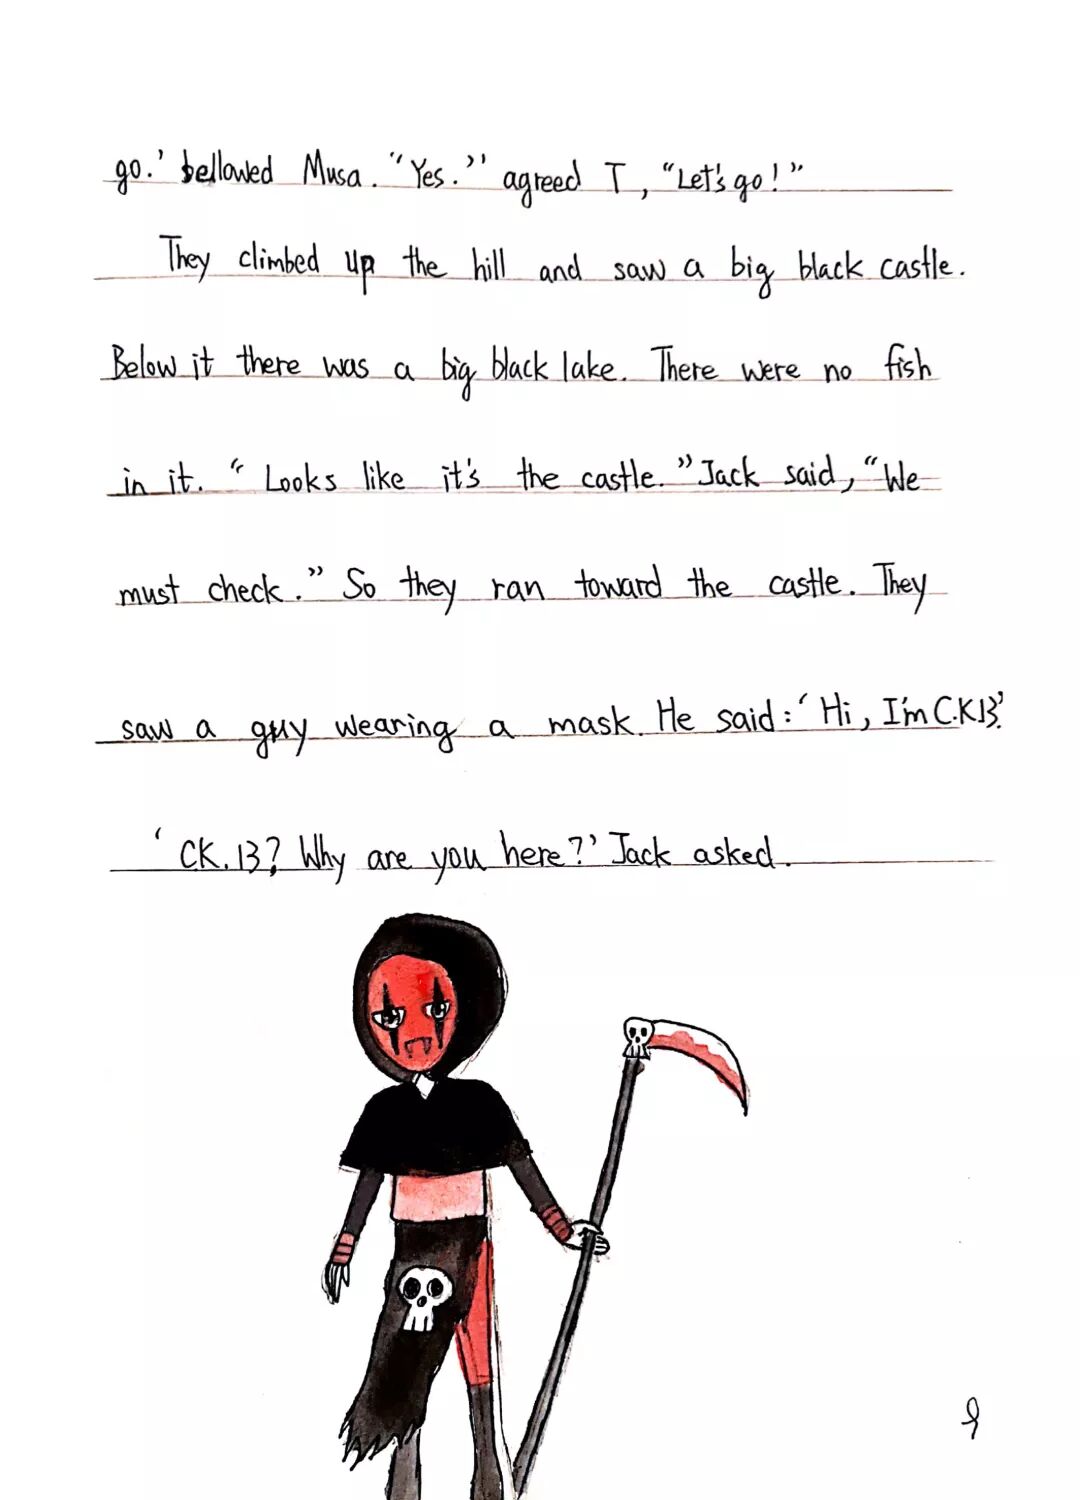 go.' bellowed Musa. "Yes." agreed T, "Let's go!"
They climbed up the hill and saw a big black castle.
Below it there was a big black lake. There were no fish
in it. "Looks like it's the castle." Jack said, "We
must check." So they ran toward the castle. They
saw a guy wearing a mask. He said: 'Hi, I'm C.K13.'
'CK.13? Why are you here?' Jack asked.
9